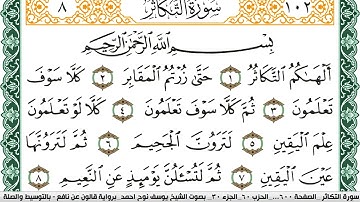 ٨ سُورَةُ التَّكَاثُرِ ١٠٢
بِسْمِ اللَّهِ الرَّحْمَٰنِ الرَّحِيمِ
أَلْهَاكُمُ التَّكَاثُرُ ١ حَتَّىٰ زُرْتُمُ الْمَقَابِرَ ٢ كَلَّا سَوْفَ
تَعْلَمُونَ ٣ ثُمَّ كَلَّا سَوْفَ تَعْلَمُونَ ٤ كَلَّا لَوْ تَعْلَمُونَ
عِلْمَ الْيَقِينِ ٥ لَتَرَوُنَّ الْجَحِيمَ ٦ ثُمَّ لَتَرَوُنَّهَا
عَيْنَ الْيَقِينِ ٧ ثُمَّ لَتُسْأَلُنَّ يَوْمَئِذٍ عَنِ النَّعِيمِ ٨
سورة التكاثر - الصفحة ٦٠٠ - الحزب ٦٠ - الجزء ٣٠ - بصوت الشيخ يوسف نوح احمد - برواية قالون عن نافع - بالتوسيط والصلة